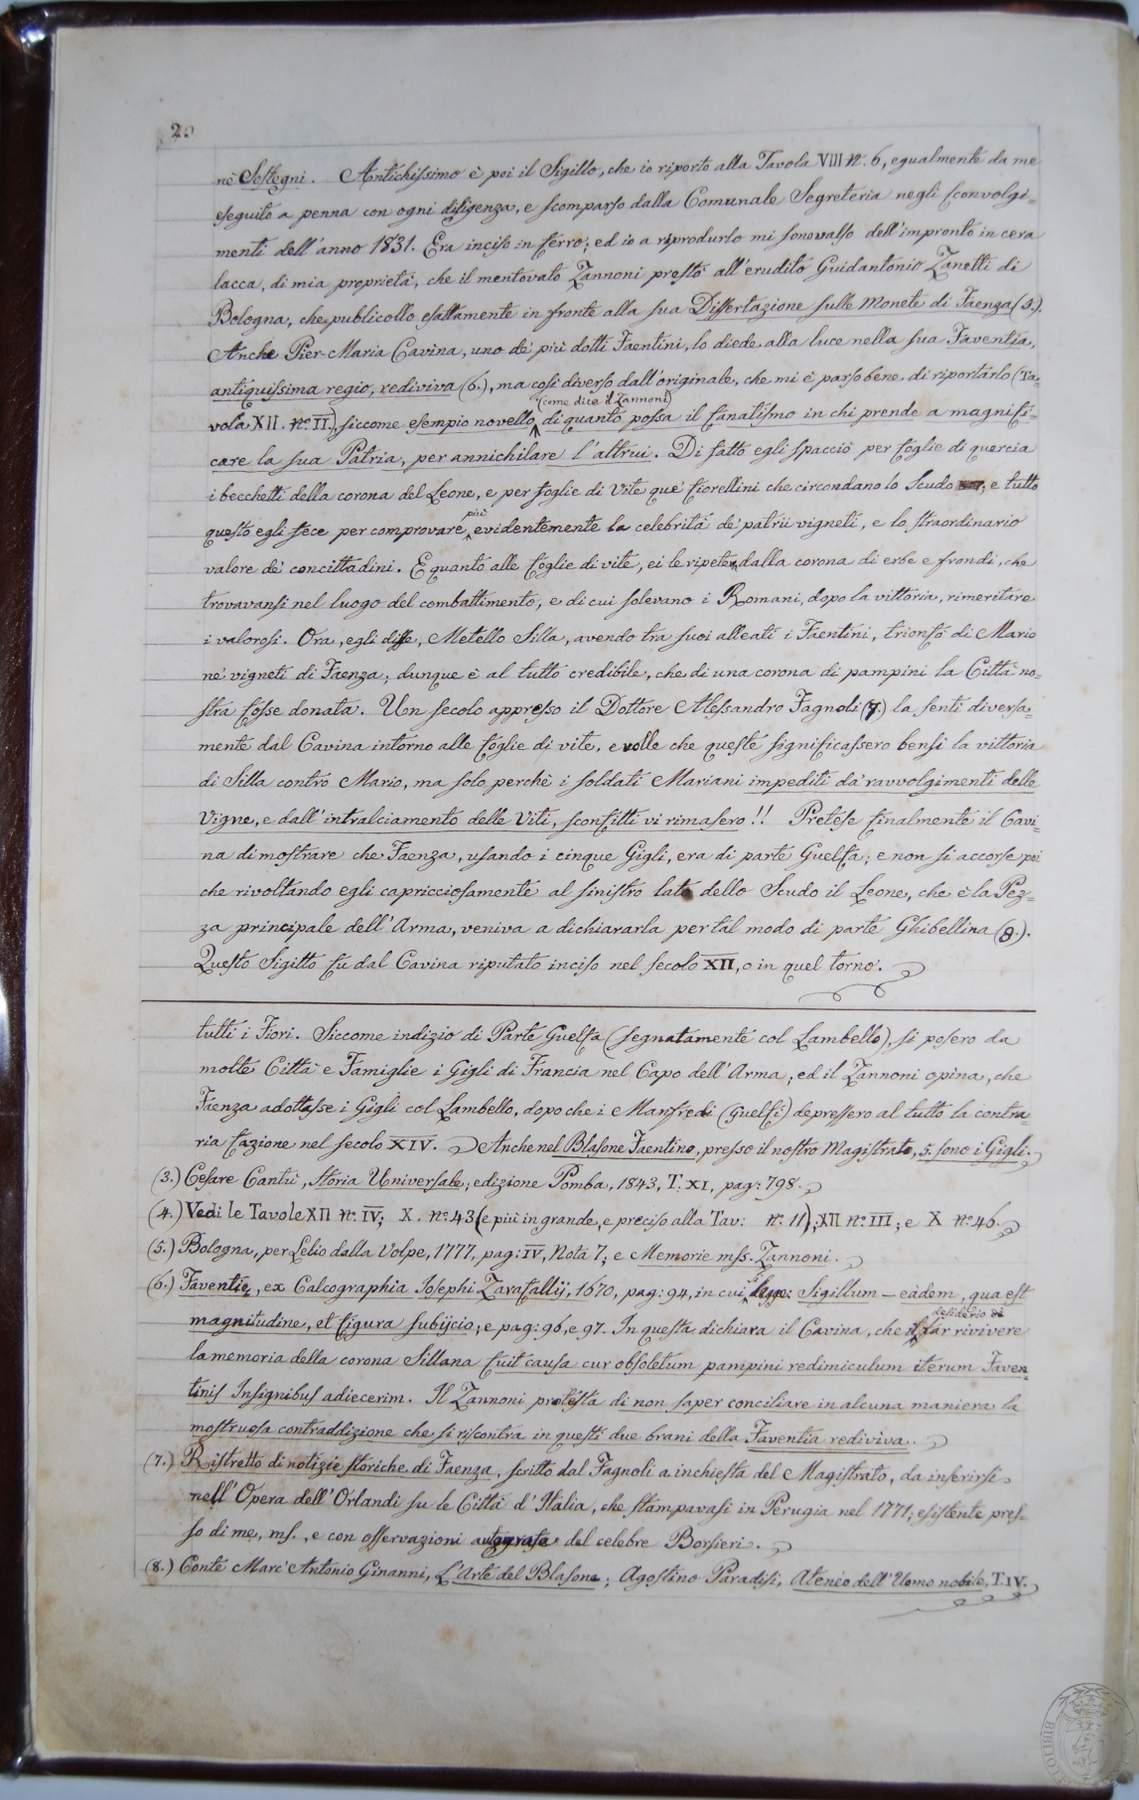 20
nè Sostegni. Antichissimo è poi il Sigillo, che io riporto alla Tavola VIII n. 6, egualmente da me
eseguito a penna con ogni diligenza, e scomparso dalla Comunale Segreteria negli sconvolgi=
menti dell'anno 1831. Era inciso in ferro; ed io a riprodurlo mi sono valso dell'impronto in cera
lacca, di mia proprietà, che il mentovato Zannoni prestò all'erudito Guidantonio Zanetti di
Bologna, che publicollo esattamente in fronte alla sua Dissertazione sulle Monete di Faenza (5.).
Anche Pier-Maria Cavina, uno de' più dotti Faentini, lo diede alla luce nella sua Faventia,
antiquissima regio, rediviva (6.), ma così diverso dall'originale, che mi è parso bene di riportarlo (Ta-
vola XII. n.º II.), siccome esempio novello (come dice il Zannoni) di quanto possa il fanatismo in chi prende a magnifi-
care la sua Patria, per annichilare l'altrui. Di fatto egli spacciò per foglie di quercia
i becchetti della corona del Leone, e per foglie di Vite que' fiorellini che circondano lo Scudo; e tutto
questo egli fece per comprovare più evidentemente la celebrità de' patrii vigneti, e lo straordinario
valore de' concittadini. E quanto alle foglie di vite, ei le ripete dalla corona di erbe e frondi, che
trovavansi nel luogo del combattimento, e di cui solevano i Romani, dopo la vittoria, rimeritare
i valorosi. Ora, egli disse, Metello Silla, avendo tra suoi alleati i Faentini, trionfò di Mario
ne' vigneti di Faenza; dunque è al tutto credibile, che di una corona di pampini la Città no=
stra fosse donata. Un secolo appresso il Dottore Alessandro Fagnoli (7.) la sentì diversa=
mente dal Cavina intorno alle foglie di vite, e volle che queste significassero bensì la vittoria
di Silla contro Mario, ma solo perchè i soldati Mariani impediti da' ravvolgimenti delle
Vigne, e dall'intralciamento delle Viti, sconfitti vi rimasero!! Pretese finalmente il Cavi=
na dimostrare che Faenza, usando i cinque Gigli, era di parte Guelfa; e non si accorse poi
che rivoltando egli capricciosamente al sinistro lato dello Scudo il Leone, che è la Pez=
za principale dell'Arma, veniva a dichiararla per tal modo di parte Ghibellina (8.).
Questo Sigillo fu dal Cavina riputato inciso nel secolo XII, o in quel torno.
tutti i Fiori. Siccome indizio di Parte Guelfa (segnatamente col Lambello), si posero da
molte Città e Famiglie i Gigli di Francia nel Capo dell'Arma; ed il Zannoni opina, che
Faenza adottasse i Gigli col Lambello, dopo che i Manfredi (Guelfi) depressero al tutto la contra-
ria fazione nel secolo XIV. Anche nel Blasone Faentino, presso il nostro Magistrato, 5. sono i Gigli.
(3.) Cesare Cantù, Storia Universale; edizione Pomba, 1843, T. XI, pag: 798.
(4.) Vedi le Tavole XII n.º IV; X. n.º 43 (e più in grande, e preciso alla Tav: n.º 11); XII n.º III; e X n.º 46.
(5.) Bologna, per Lelio dalla Volpe, 1777, pag: IV, Nota 7; e Memorie mss. Zannoni.
(6.) Faventiæ, ex Calcographia Josephi Zarafallij, 1670, pag: 94, in cui si legge: Sigillum – eàdem, qua est
magnitudine, et figura subijcio; e pag: 96, e 97. In questa dichiara il Cavina, che desiderio di far rivivere
la memoria della corona Sillana fuit causa cur obsoletum pampini redimiculum iterum Faven
tinis Insignibus adiecerim. Il Zannoni protesta di non saper conciliare in alcuna maniera la
mostruosa contraddizione che si riscontra in questi due brani della Faventia rediviva.
(7.) Ristretto di notizie storiche di Faenza, scritto dal Fagnoli a inchiesta del Magistrato, da inserirsi
nell'Opera dell'Orlandi su le Città d'Italia, che stampavasi in Perugia nel 1771; esistente pres-
so di me, ms., e con osservazioni autografe del celebre Borsieri.
(8.) Conte Marc'Antonio Ginanni, L'Arte del Blasone; Agostino Paradisi, Ateneo dell'Uomo nobile, T. IV.